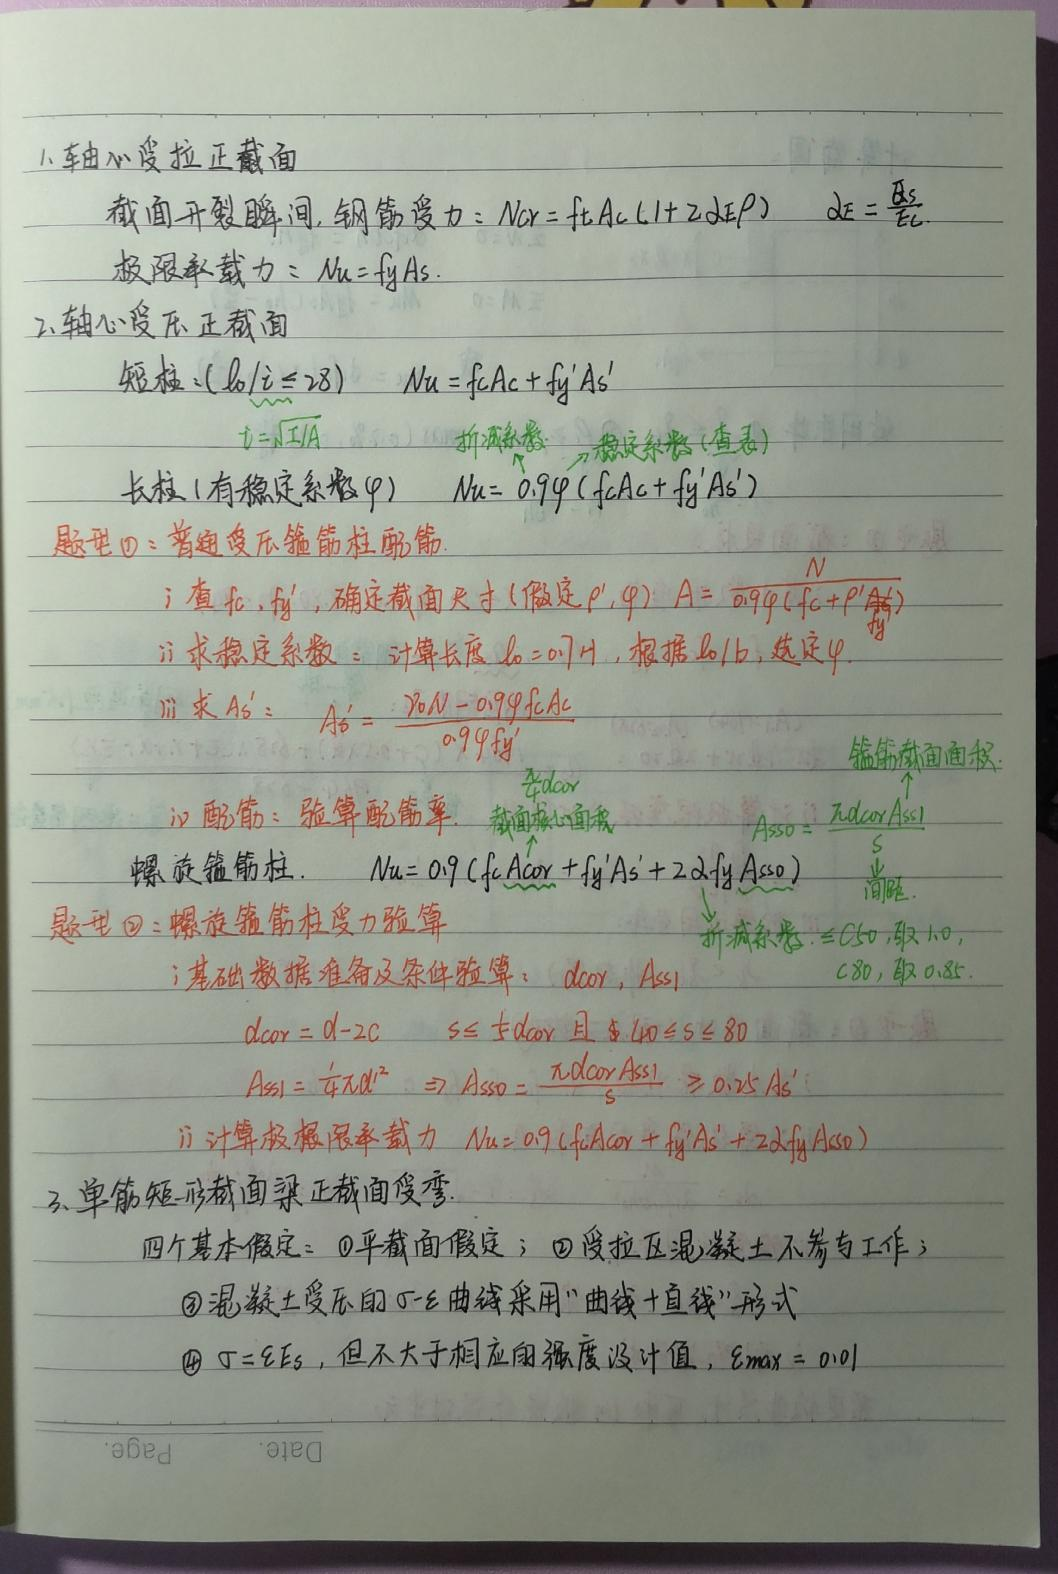 1、轴心受拉正截面
截面开裂瞬间，钢筋受力：Ncr = ftAc(1+2αEρ)  αE = Es/Ec.
极限承载力：Nu = fyAs.
2、轴心受压正截面
短柱：(l₀/i ≤ 28)  Nu = fcAc + fy'As'
i = √(I/A)  折减系数  稳定系数(查表)
长柱(有稳定系数φ)  Nu = 0.9φ(fcAc + fy'As')
题型①：普通受压箍筋柱配筋.
i 查fc, fy', 确定截面尺寸(假定ρ', φ)  A = N/0.9φ(fc+ρ'fy')
ii 求稳定系数：计算长度l₀ = 0.7H, 根据l₀/b, 选定φ.
iii 求As'：As' = (γ₀N - 0.9φfcAc)/0.9φfy'
箍筋截面面积.
π/4 dcor
iv 配筋：验算配筋率.  截面核心面积  Asso = πdcorAss1/s
螺旋箍筋柱.  Nu = 0.9(fcAcor + fy'As' + 2αfyAsso)  间距.
题型②：螺旋箍筋柱受力验算  折减系数. ≤C50, 取1.0,
C80, 取0.85.
i 基础数据准备及条件验算：dcor, Ass1
dcor = d-2c  s ≤ 1/5 dcor 且 40 ≤ s ≤ 80
Ass1 = 1/4 πd'² ⇒ Asso = πdcorAss1/s ≥ 0.25As'
ii 计算极限承载力  Nu = 0.9(fcAcor + fy'As' + 2αfyAsso)
3、单筋矩形截面梁正截面受弯.
四个基本假定：①平截面假定；②受拉区混凝土不参与工作；
③混凝土受压的σ-ε曲线采用"曲线+直线"形式
④ σ=εEs, 但不大于相应的强度设计值, εmax = 0.01
Date.  Page.